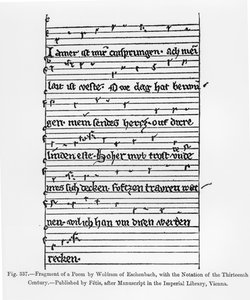 Iamer ist mir entsprungen. ach mein
lait ist veste. O we dag hat
gen. mein sendes hercz. dire
linden este. Hoher mvt trost vnde
mus sich decken. trauren
nen. wil ich han vir disen werden
recken.
Fig. 337.—Fragment of a Poem by Wolfram of Eschenbach, with the Notation of the Thirteenth
Century.—Published by Fétis, after Manuscript in the Imperial Library, Vienna.